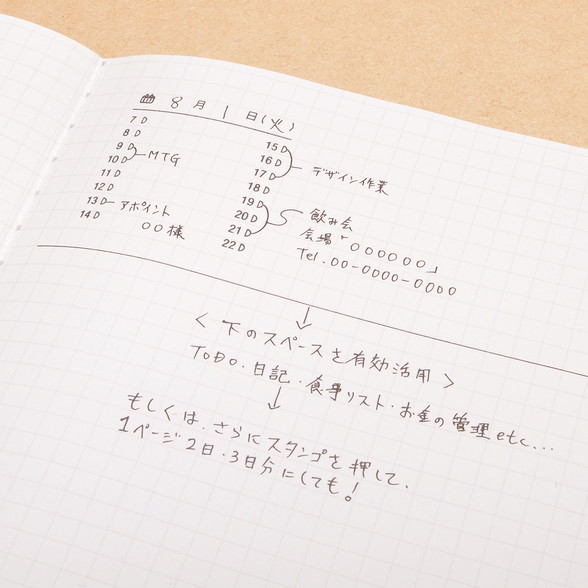 8月1日(火)
7
8
9
10 MTG
11
12
13 アポイント
14 〇〇様
15
16 デザイン作業
17
18
19
20 飲み会
21 会場「〇〇〇〇〇〇」
22 Tel.〇〇-〇〇〇〇-〇〇〇〇
<下のスペースを有効活用>
TODO・日記・食事リスト・お金の管理etc...
もしくは、さらにスタンプを押して、
1ページ2日・3日分にしても!